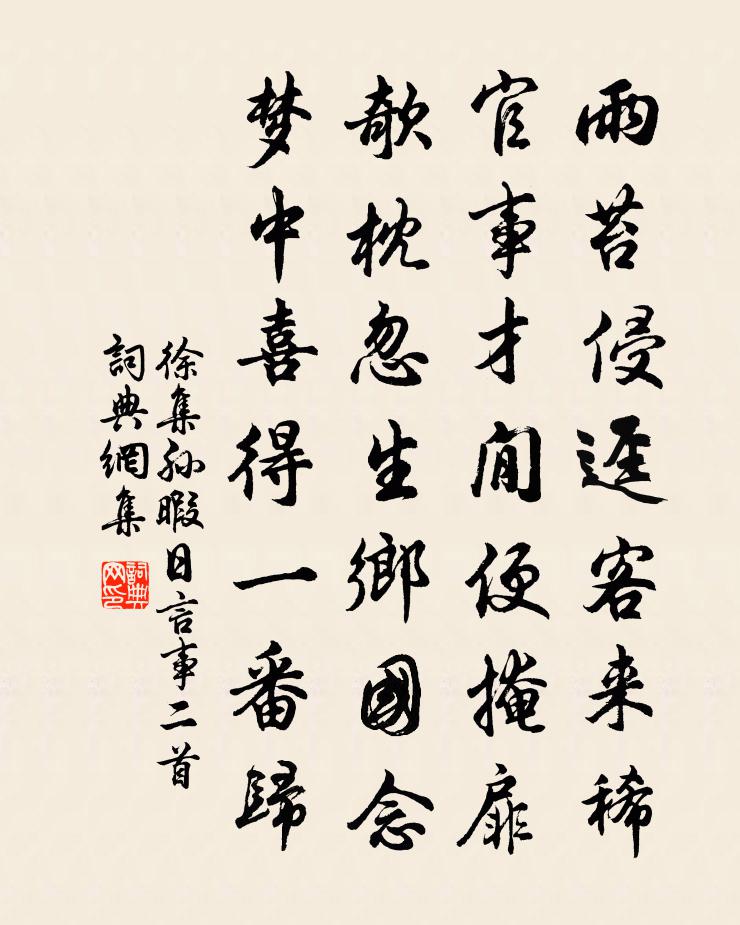 雨苔侵逕客来稀
官事才閒便掩扉
欹枕忽生鄉國念
梦中喜得一番歸
徐集孙暇日言事二首
詞典網集
詞典网印